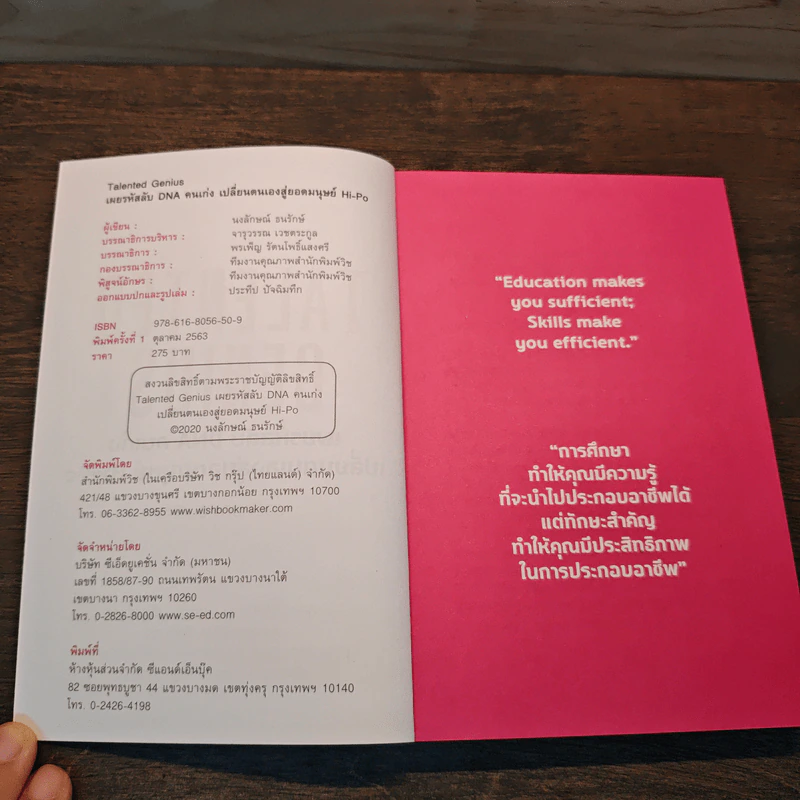 Talented Genius
เผยรหัสลับ DNA คนเก่ง เปลี่ยนตนเองสู่ยอดมนุษย์ Hi-Po
ผู้เขียน : นงลักษณ์ ธนรักษ์
บรรณาธิการบริหาร : จารุวรรณ เวชตระกูล
บรรณาธิการ : พรเพ็ญ รัตนโพธิ์แสงศรี
กองบรรณาธิการ : ทีมงานคุณภาพสำนักพิมพ์วิช
พิสูจน์อักษร : ทีมงานคุณภาพสำนักพิมพ์วิช
ออกแบบปกและรูปเล่ม : ประทีป ปัจฉิมทึก
ISBN 978-616-8056-50-9
พิมพ์ครั้งที่ 1 ตุลาคม 2563
ราคา 275 บาท
สงวนลิขสิทธิ์ตามพระราชบัญญัติลิขสิทธิ์
Talented Genius เผยรหัสลับ DNA คนเก่ง
เปลี่ยนตนเองสู่ยอดมนุษย์ Hi-Po
©2020 นงลักษณ์ ธนรักษ์
จัดพิมพ์โดย
สำนักพิมพ์วิช (ในเครือบริษัท วิช กรุ๊ป (ไทยแลนด์) จำกัด)
421/48 แขวงบางขุนศรี เขตบางกอกน้อย กรุงเทพฯ 10700
โทร. 06-3362-8955 www.wishbookmaker.com
จัดจำหน่ายโดย
บริษัท ซีเอ็ดยูเคชั่น จำกัด (มหาชน)
เลขที่ 1858/87-90 ถนนเทพรัตน แขวงบางนาใต้
เขตบางนา กรุงเทพฯ 10260
โทร. 0-2826-8000 www.se-ed.com
พิมพ์ที่
ห้างหุ้นส่วนจำกัด ซีแอนด์เอ็นบุ๊ค
82 ซอยพุทธบูชา 44 แขวงบางมด เขตทุ่งครุ กรุงเทพฯ 10140
โทร. 0-2426-4198
“Education makes
you sufficient;
Skills make
you efficient.”
“การศึกษา
ทำให้คุณมีความรู้
ที่จะนำไปประกอบอาชีพได้
แต่ทักษะสำคัญ
ทำให้คุณมีประสิทธิภาพ
ในการประกอบอาชีพ”